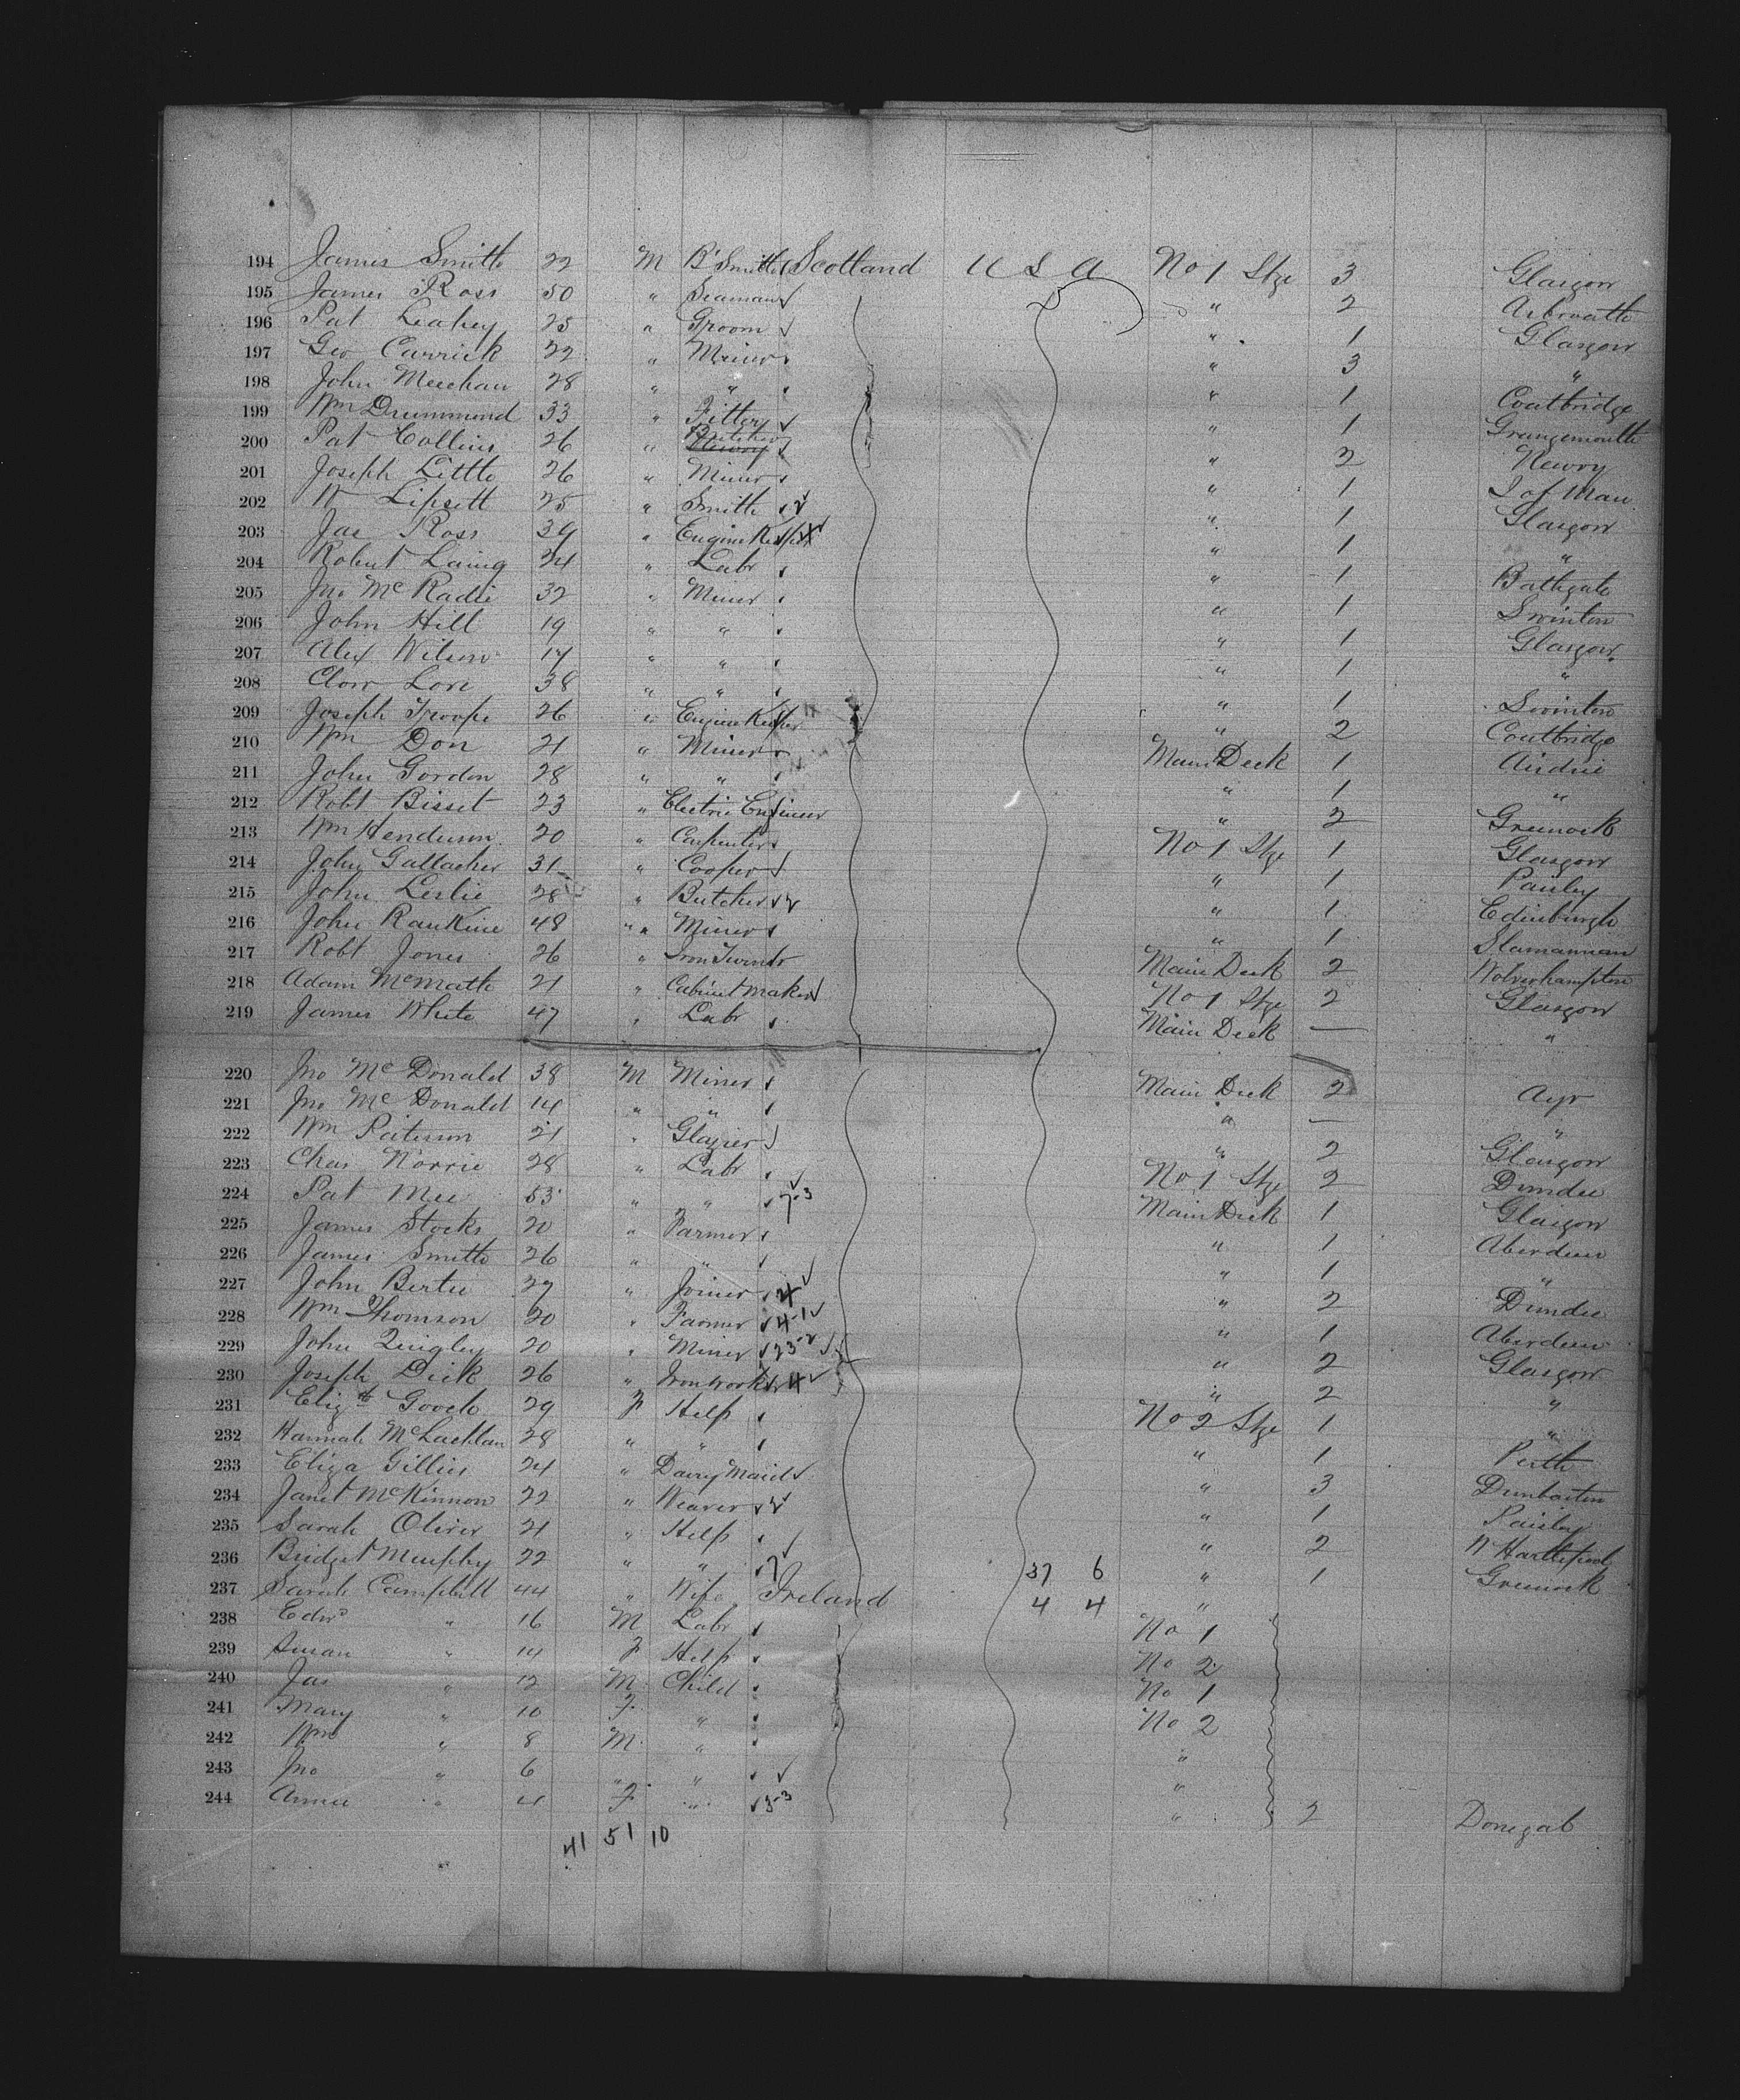 194 James Smith 22 M B'Smith Scotland U S A No 1 Stge 3 Glasgow
195 James Ross 50 " Seaman " 2 Arbroath
196 Pat Leahey 25 " Groom " 1 Glasgow
197 Geo Carrick 22 " Miner " 3 "
198 John Meechan 28 " " " 1 Coatbridge
199 Wm Drummond 33 " Fitter " 1 Grangemouth
200 Pat Collins 26 " Butcher Newry " 2 Newry
201 Joseph Little 26 " Miner " 1 I of Man
202 W Lipsett 25 " Smith 2 " 1 Glasgow
203 Jas Ross 39 " Engine Keeper " 1 "
204 Robert Laing 24 " Labr " 1 Bathgate
205 Jno McRadie 32 " Miner " 1 Swinton
206 John Hill 19 " " " 1 Glasgow
207 Alex Wilson 17 " " " 1 "
208 Love 38 " " " 1 Swinton
209 Joseph Troope 26 " Engine Keeper " 2 Coatbridge
210 Wm Don 21 " Miner Main Deck 1 Airdrie
211 John Gordon 28 " " " 1 "
212 Robt Bisset 23 " Electric Engineer " 2 Greenock
213 Wm Henderson 20 " Carpenter No 1 Stge 1 Glasgow
214 John Gallacher 31 " Cooper " 1 Paisley
215 John Leslie 28 " Butcher 2 " 1 Edinburgh
216 John Rankine 48 " " Miner " 1 Slamannan
217 Robt Jones 26 " Iron Turner Main Deck 2 Wolverhampton
218 Adam McMath 21 " Cabinet Maker No 1 Stge 2 Glasgow
219 James White 47 " Labr Main Deck — "
220 Jno McDonald 38 M Miner Main Deck 2 Ayr
221 Jno McDonald 14 " " " — "
222 Wm Paterson 21 " Glazier " 2 Glasgow
223 Chas Norrie 28 " Labr No 1 Stge 2 Dundee
224 Pat Mee 53 " " 7-3 Main Deck 1 Glasgow
225 James Stocks 20 " Farmer " 1 Aberdeen
226 James Smith 26 " " " 1 "
227 John Bertie 27 " Joiner " 2 Dundee
228 Wm Thomson 20 " Farmer 4-1 " 1 Aberdeen
229 John Quigley 20 " Miner 23-2 " 2 Glasgow
230 Joseph Dick 26 " Ironworker 4 " 2 "
231 Elizth Gooch 29 F Help No 2 Stge 1 "
232 Hannah McLachlan 28 " " " 1 Perth
233 Eliza Gillies 24 " Dairy Maid " 3 Dunbarton
234 Janet McKinnon 22 " Weaver 2 " 1 Paisley
235 Sarah Oliver 21 " Help " 2 W Hartlepool
236 Bridget Murphy 22 " " 7 37 6 " 1 Greenock
237 Sarah Campbell 44 " Wife Ireland 4 4 "
238 Edwd " 16 M Labr No 1
239 Susan " 14 F Help No 2
240 Jas " 12 M Child No 1
241 Mary " 10 F " No 2
242 Wm " 8 M " "
243 Jno " 6 " " "
244 Annie " 4 F " 3-3 " 2 Donegal
41 51 10